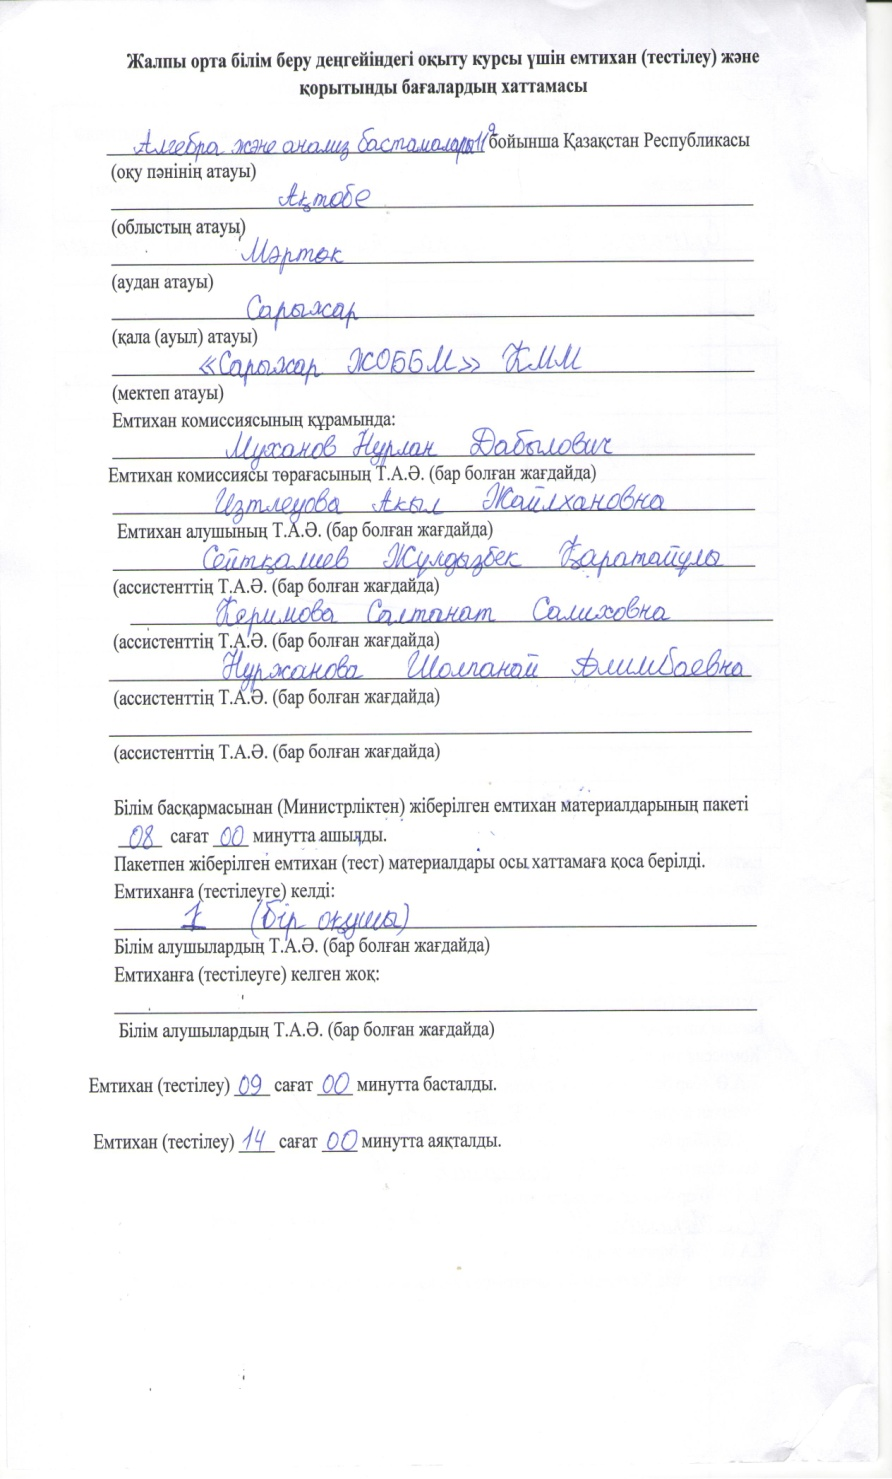 Жалпы орта білім беру деңгейіндегі оқыту курсы үшін емтихан (тестілеу) және
қорытынды бағалардың хаттамасы
Алгебра және анализ бастамалары 11 бойынша Қазақстан Республикасы
(оқу пәнінің атауы)
Ақтөбе
(облыстың атауы)
Мәртөк
(аудан атауы)
Сарыжар
(қала (ауыл) атауы)
«Сарыжар ЖОББМ» КММ
(мектеп атауы)
Емтихан комиссиясының құрамында:
Муханов Нурлан Дабылович
Емтихан комиссиясы төрағасының Т.А.Ә. (бар болған жағдайда)
Изтлеуова Акыл Жайлхановна
Емтихан алушының Т.А.Ә. (бар болған жағдайда)
Сейтқалиев Жұлдызбек Қаратайұлы
(ассистенттің Т.А.Ә. (бар болған жағдайда)
Керимова Салтанат Салиховна
(ассистенттің Т.А.Ә. (бар болған жағдайда)
Нуржанова Шолпанай Алимбаевна
(ассистенттің Т.А.Ә. (бар болған жағдайда)
(ассистенттің Т.А.Ә. (бар болған жағдайда)
Білім басқармасынан (Министрліктен) жіберілген емтихан материалдарының пакеті
08 сағат 00 минутта ашылды.
Пакетпен жіберілген емтихан (тест) материалдары осы хаттамаға қоса берілді.
Емтиханға (тестілеуге) келді:
1 (бір оқушы)
Білім алушылардың Т.А.Ә. (бар болған жағдайда)
Емтиханға (тестілеуге) келген жоқ:
Білім алушылардың Т.А.Ә. (бар болған жағдайда)
Емтихан (тестілеу) 09 сағат 00 минутта басталды.
Емтихан (тестілеу) 14 сағат 00 минутта аяқталды.